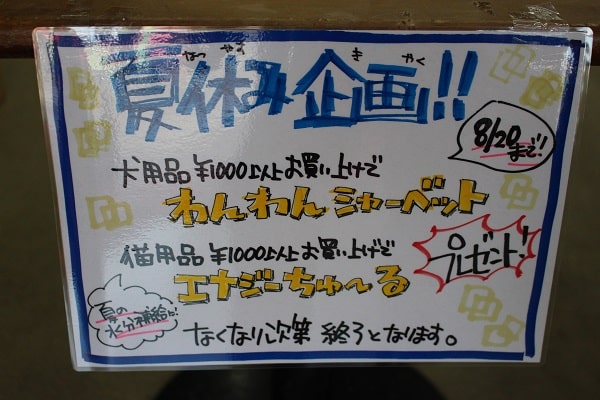 夏休み企画!!
なつ やす き かく
8/20まで!
犬用品 ¥1000以上お買い上げで
わんわんシャーベット
猫用品 ¥1000以上お買い上げで
エナジーちゅ〜る
プレゼント!
夏の水分補給に!
なくなり次第 終了となります。